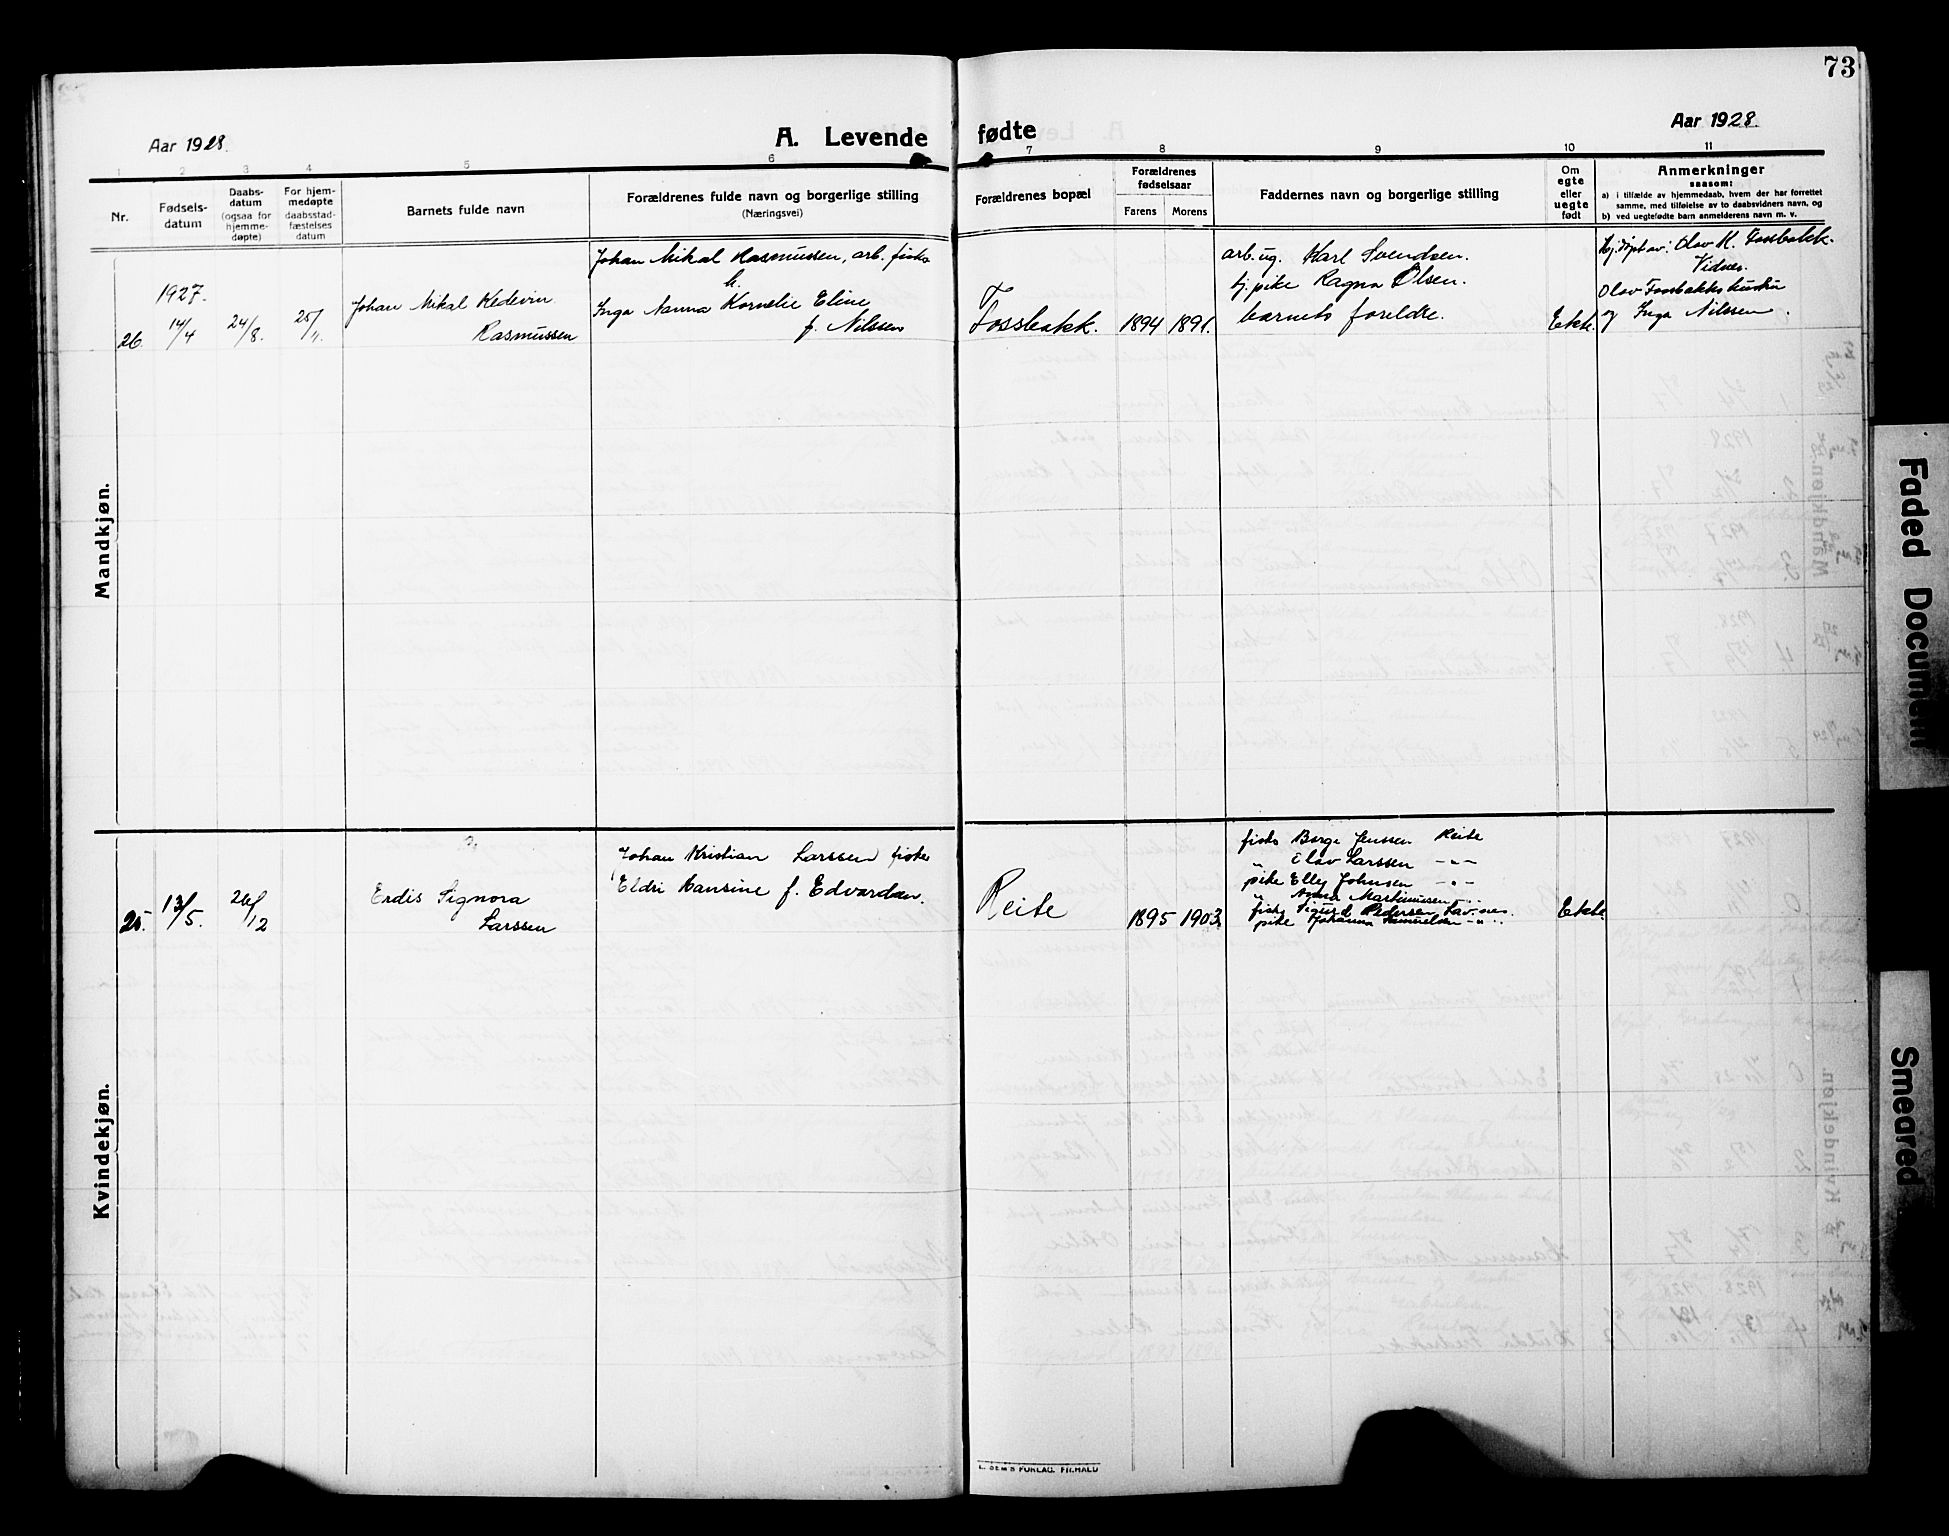 73
Aar 1928.
A. Levende fødte
Aar 1928.
1 2 3 4 5 6 7 8 9 10 11
Nr.
Fødsels-
datum
Daabs-
datum
(ogsaa for
hjemme-
døpte)
For hjem-
medøpte
daabsstad-
fæstelses
datum
Barnets fulde navn
Forældrenes fulde navn og borgerlige stilling
(Næringsvei)
Forældrenes bopæl
Forældrenes
fødselsaar
Farens Morens
Faddernes navn og borgerlige stilling
Om
egte
eller
uegte
født
Anmerkninger
saasom:
a) i tilfælde av hjemmedaab, hvem der har forrettet
samme, med tilføielse av to daabsvidners navn, og
b) ved uegtefødte barn anmelderens navn m. v.
Mandkjøn.
26.
1927.
14/4
24/8.
25/„.
Johan Mikal Kedevin
Rasmussen
Johan Mikal Rasmussen, arb. fisker
h.
Inga Nanna Kornelie Eline
f. Nilssen
Fossbakk.
1894 1891.
arb. ug. Karl Svendsen.
tj. pike Ragna Olsen.
barnets foreldre.
Ekte.
Hj. døpt av: Olav H. Fossbakk.
Vidner.
Olav Fossbakks hustru
og Inga Nilssen.
Kvindekjøn.
25.
13/5.
26/12
Erdis Signora
Larssen
Johan Kristian Larssen fisker
Eldri Hansine f. Edvardsen.
Reite
1895 1903.
fisks Borge Jenssen Reite
„ Olav Larssen -„-
pike Elley Johnsen -„-
„ Anna Martinussen
fisks Sigurd Pedersen Lav.nes.
pike Johanna Samuelsen -„-
Ekte.
E. SEM'S FORLAG. FR.HALD
Faded Document
Smeared